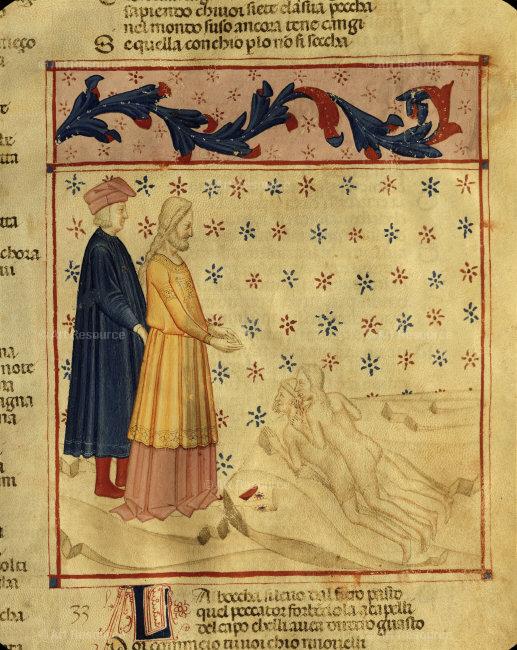 sapiendo chiuoi siete elasua peccha
nel mondo suso ancora tene cangi
Se quella con chio plo no si seccha
ta
uta
chora
ui
na
note
na
agna
na
olti
cha
33
LA boccha sileuo dal fiero pasto
quel peccator forbendola a capelli
del capo chelli auea diretro guasto
Poi comincio tu uuoi chio rinouelli
© Art Resource